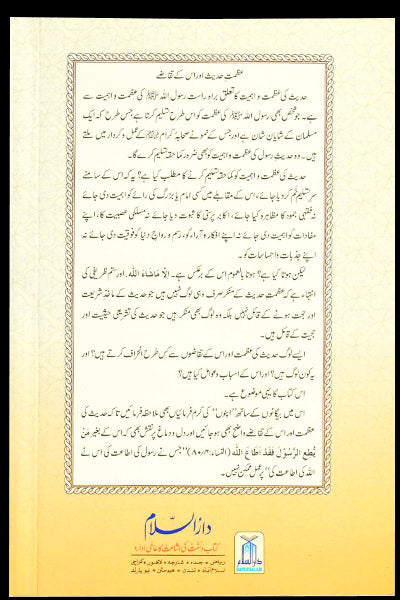 عظمتِ حدیث اور اس کے تقاضے
حدیث کی عظمت و اہمیت کا تعلق براہِ راست رسول اللہ ﷺ کی عظمت و اہمیت سے
ہے۔ جو شخص بھی رسول اللہ ﷺ کی عظمت کو اس طرح تسلیم کرتا ہے جس طرح کہ ایک
مسلمان کے شایانِ شان ہے اور جس کے نمونے صحابۂ کرام کے عمل و کردار میں ملتے
ہیں۔ وہ حدیثِ رسول کی عظمت و اہمیت کو بھی ضرور کما حقہ تسلیم کرے گا۔
حدیث کی عظمت و اہمیت کو کما حقہ تسلیم کرنے کا مطلب کیا ہے؟ یہ کہ اس کے سامنے
سرِ تسلیم خم کر دیا جائے، اس کے مقابلے میں کسی امام یا بزرگ کی رائے کو اہمیت دی جائے
نہ فقہی جمود کا مظاہرہ کیا جائے، اکابر پرستی کا ثبوت دیا جائے نہ مسلکی عصبیت کا، اپنے
مفادات کو اہمیت دی جائے نہ اپنے افکار و آراء کو، رسم و رواجِ دنیا کو فوقیت دی جائے نہ
اپنے جذبات و احساسات کو۔
لیکن ہوتا کیا ہے؟ ہوتا بالعموم اس کے برعکس ہے۔ اِلَّا مَاشَاءَ اللّٰہ، اور ستم ظریفی کی
انتہاء ہے کہ عظمتِ حدیث کے منکر صرف وہی لوگ نہیں ہیں جو حدیث کے ماخذِ شریعت
اور حجت ہونے کے قائل نہیں بلکہ وہ لوگ بھی منکر ہیں جو حدیث کی تشریعی حیثیت اور
حجیت کے قائل ہیں۔
ایسے لوگ حدیث کی عظمت اور اس کے تقاضوں سے کس طرح انحراف کرتے ہیں؟ اور
یہ کون لوگ ہیں؟ اور اس کے اسباب و عوامل کیا ہیں؟
اس کتاب کا یہی موضوع ہے۔
اس میں بیگانوں کے ساتھ "اپنوں" کی کرم فرمائیاں بھی ملاحظہ فرمائیں تاکہ حدیث کی
عظمت اور اس کے تقاضے واضح بھی ہو جائیں اور دل و دماغ پر نقش بھی کہ اس کے بغیر مَنْ
يُّطِعِ الرَّسُوْلَ فَقَدْ اَطَاعَ اللّٰهَ (النساء:۸۰/۴) "جس نے رسول کی اطاعت کی اس نے
اللہ کی اطاعت کی" پر عمل ممکن نہیں۔
دارالسلام
کتاب و سنت کی اشاعت کا عالمی ادارہ
ریاض • جدہ • شارجہ • لاہور • کراچی
اسلام آباد • لندن • ہیوسٹن • نیو یارک
دارالسلام
DARUSSALAM